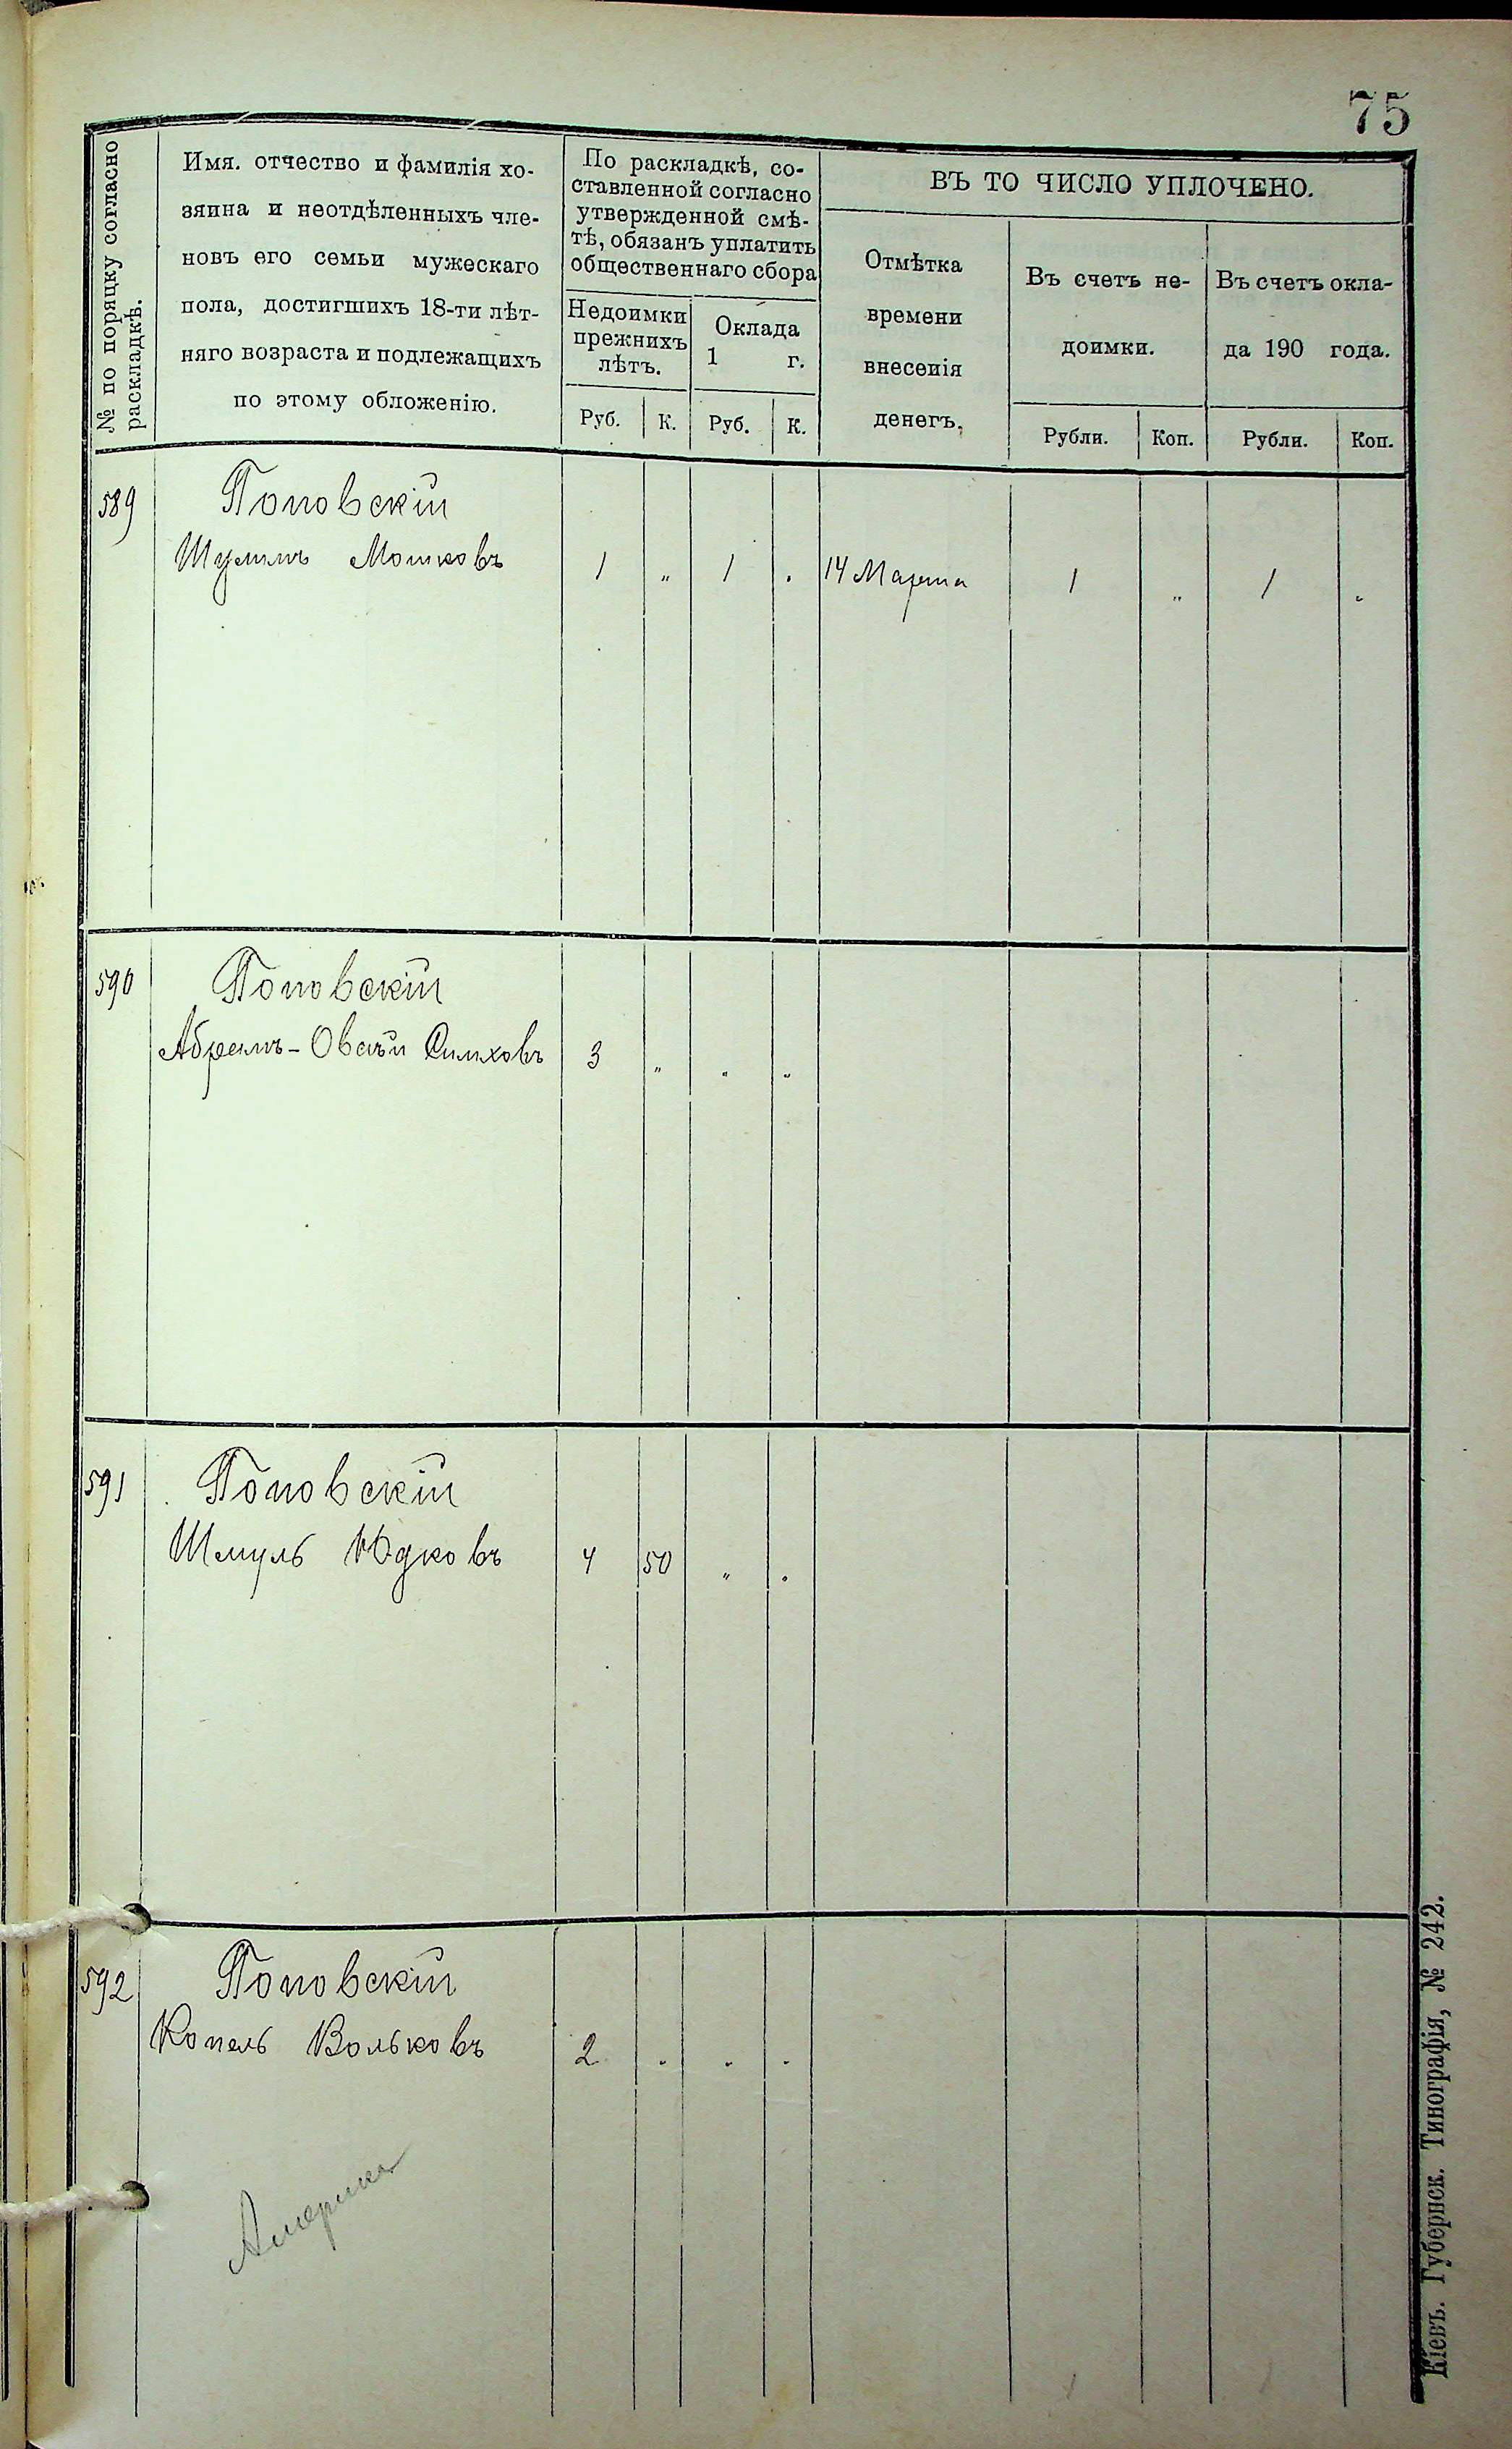 75
№ по порядку согласно
раскладкѣ.
Имя. отчество и фамилія хо-
зяина и неотдѣленныхъ чле-
новъ его семьи мужескаго
пола, достигшихъ 18-ти лѣт-
няго возраста и подлежащихъ
по этому обложенію.
По раскладкѣ, со-
ставленной согласно
утвержденной смѣ-
тѣ, обязанъ уплатить
общественнаго сбора
Недоимки
прежнихъ
лѣтъ.
Руб. К.
Оклада
1 г.
Руб. К.
ВЪ ТО ЧИСЛО УПЛОЧЕНО.
Отмѣтка
времени
внесенія
денегъ.
Въ счетъ не-
доимки.
Рубли. Коп.
Въ счетъ окла-
да 190 года.
Рубли. Коп.
589 Поповскій
Шулимъ Мошковъ 1 „ 1 „ 14 Марта 1 „ 1 „
590 Поповскій
Абрамъ-Овшій Симховъ 3 „ „ „
591 Поповскій
Шмуль Юдковъ 4 50 „ „
592 Поповскій
Копель Вольковъ 2 „ „ „
Америка
Кіевъ. Губернск. Типографія, № 242.